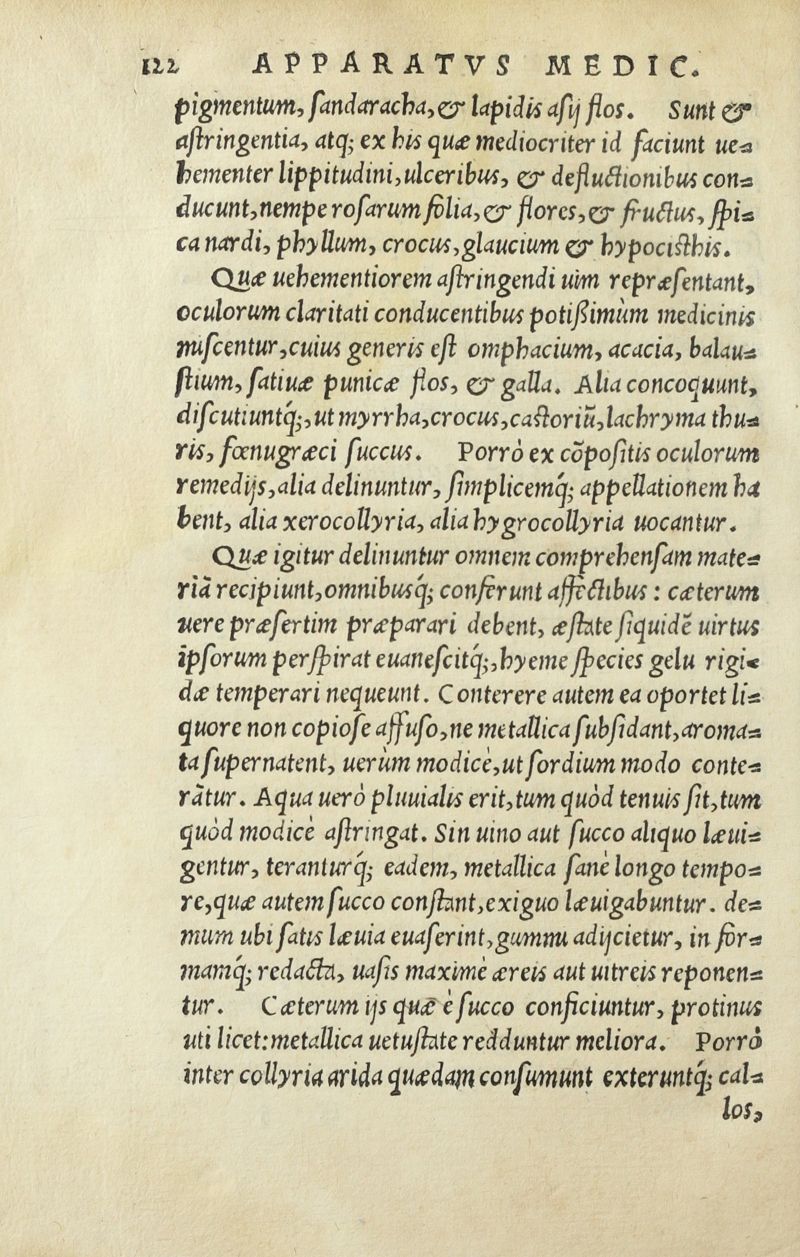 122 APPARATVS MEDIC.
pigmentum, ſandaracha, & lapidis aſij flos. Sunt &
aſtringentia, atq; ex his quæ mediocriter id faciunt ue-
hementer lippitudini, ulceribus, & defluctionibus con-
ducunt, nempe roſarum folia, & flores, & fructus, ſpi-
ca nardi, phyllum, crocus, glaucium & hypociſthis.
Quæ uehementiorem aſtringendi uim repræſentant,
oculorum claritati conducentibus potißimùm medicinis
miſcentur, cuius generis eſt omphacium, acacia, balau-
ſtium, ſatiuæ punicæ flos, & galla. Alia concoquunt,
diſcutiuntq́;, ut myrrha, crocus, caſtoriũ, lachryma thu-
ris, fœnugræci ſuccus. Porrò ex cōpoſitis oculorum
remedijs, alia delinuntur, ſimplicemq́; appellationem ha
bent, alia xerocollyria, alia hygrocollyria uocantur.
Quæ igitur delinuntur omnem comprehenſam mate-
riā recipiunt, omnibusq́; conferunt affectibus: cæterum
uere præſertim præparari debent, æſtate ſiquidē uirtus
ipſorum perſpirat euaneſcitq́;, hyeme ſpecies gelu rigi-
dæ temperari nequeunt. Conterere autem ea oportet li-
quore non copioſe affuſo, ne metallica ſubſidant, aroma-
ta ſupernatent, uerùm modicè, ut ſordium modo conte-
rātur. Aqua uerò pluuialis erit, tum quòd tenuis ſit, tum
quòd modicè aſtringat. Sin uino aut ſucco aliquo læui-
gentur, teranturq́; eadem, metallica ſanè longo tempo-
re, quæ autem ſucco conſtant, exiguo læuigabuntur. de-
mum ubi ſatis læuia euaſerint, gummi adijcietur, in for-
mamq́; redacta, uaſis maximè æreis aut uitreis reponen-
tur. Cæterum ijs quæ è ſucco conficiuntur, protinus
uti licet: metallica uetuſtate redduntur meliora. Porrò
inter collyria arida quædam conſumunt exteruntq́; cal-
los,